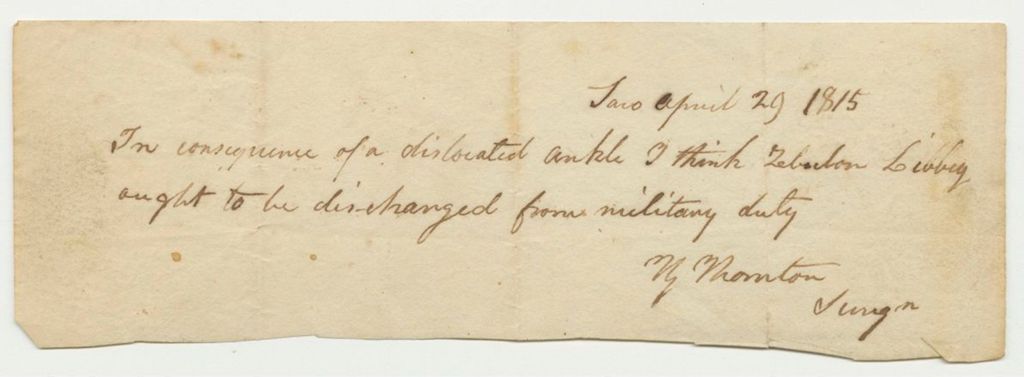 Saco April 29 1815
In consequence of a dislocated ankle I think Zebulon Libbey
ought to be discharged from military duty
Thornton
Surgn